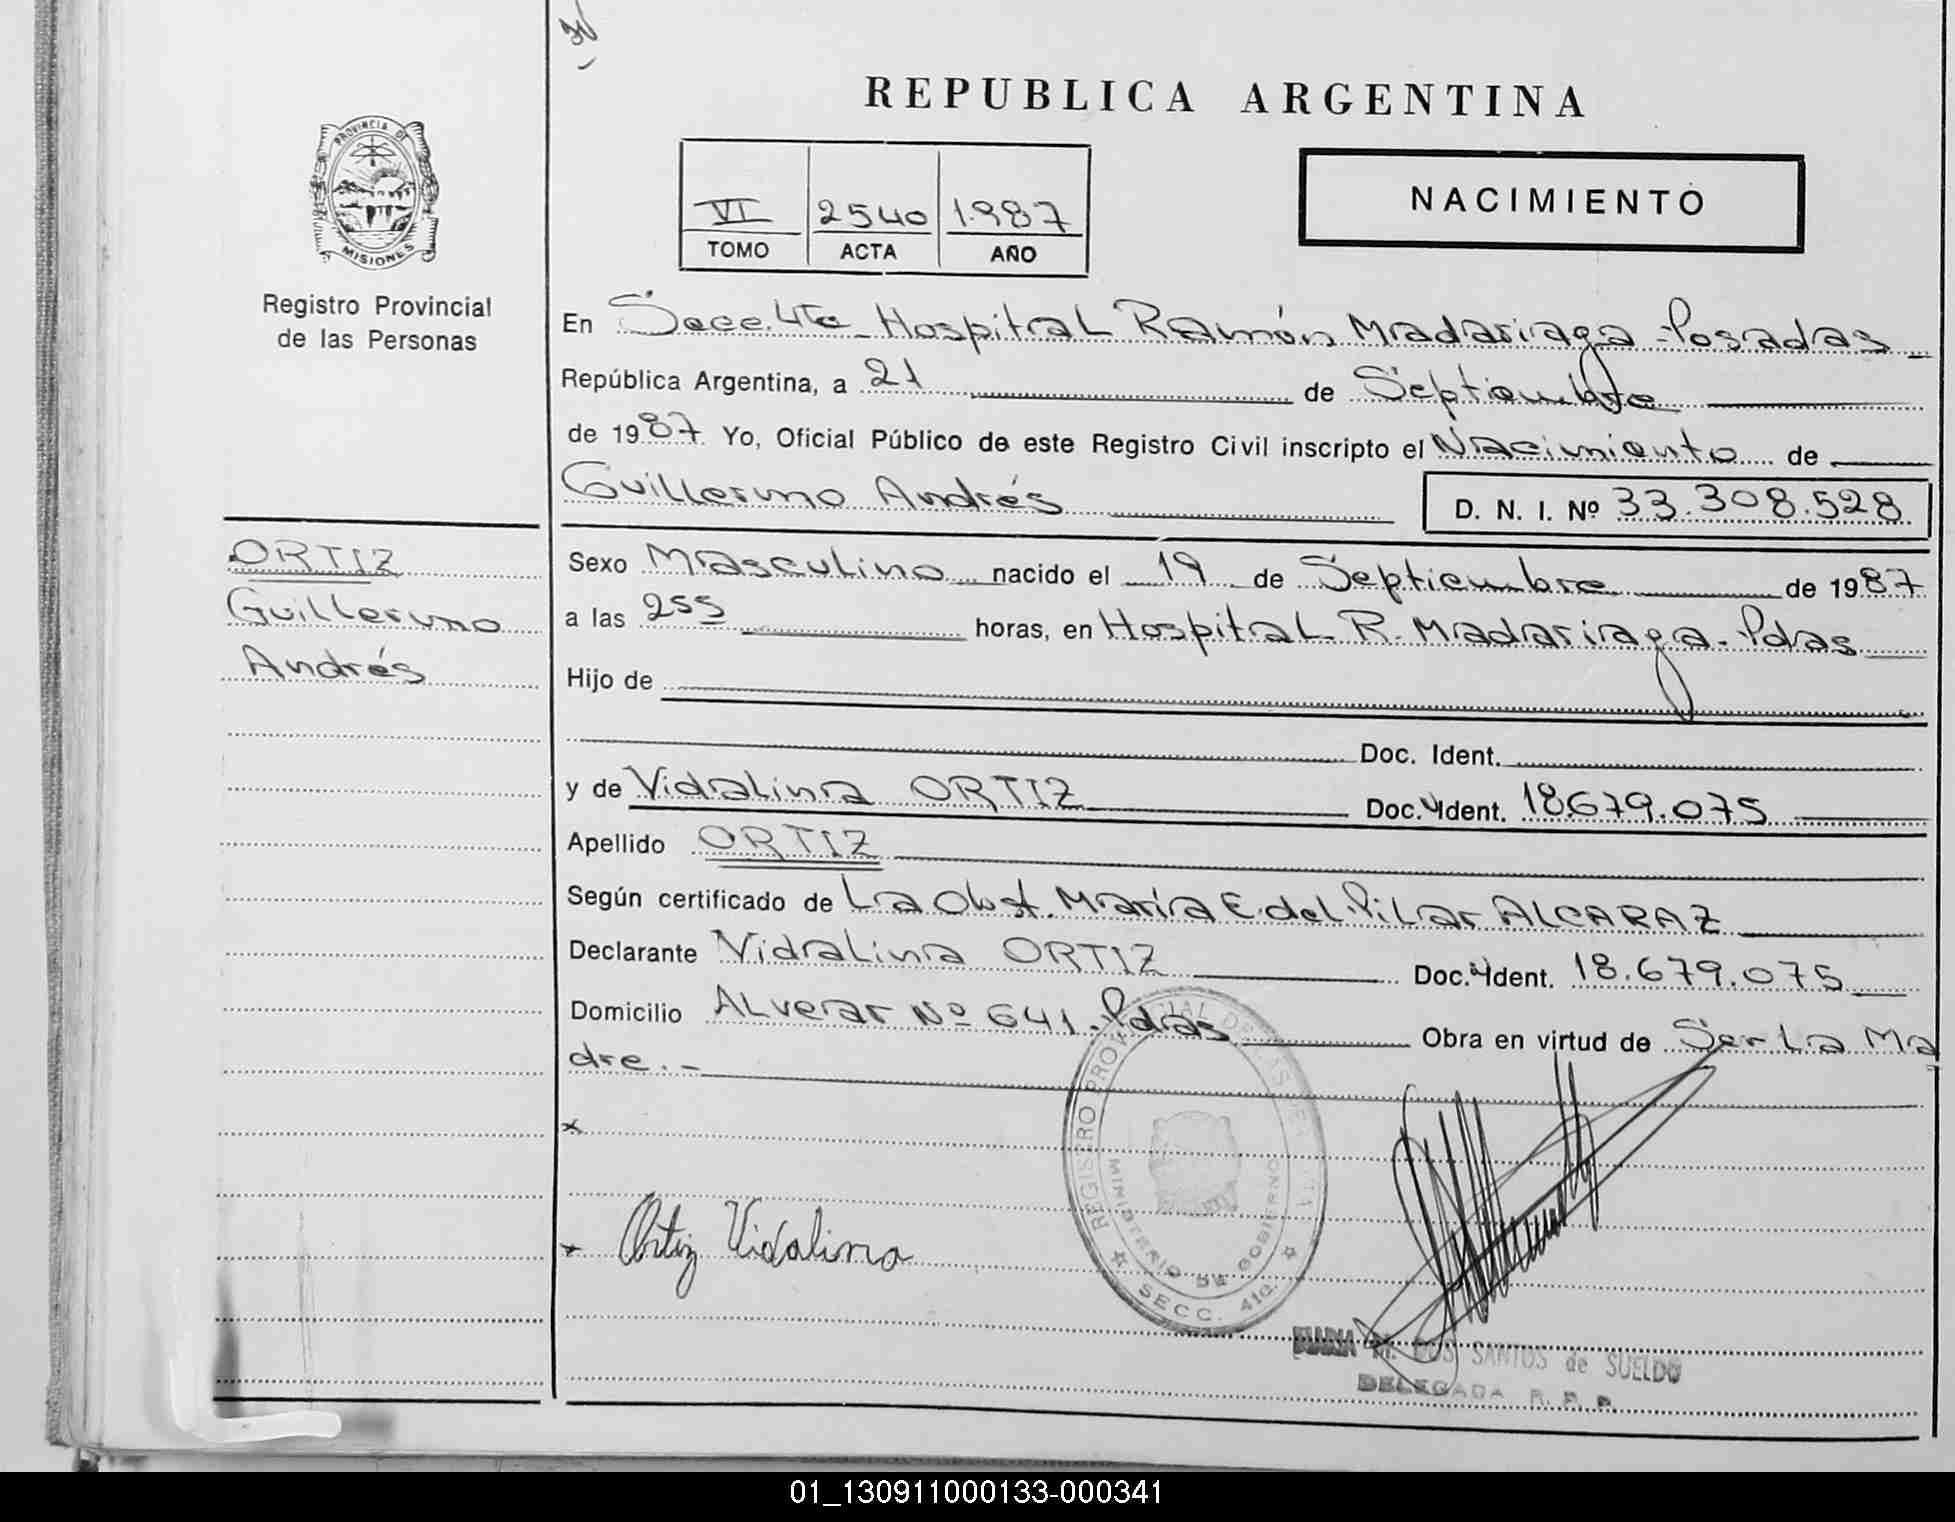 REPUBLICA ARGENTINA
PROVINCIA DE
MISIONES
Registro Provincial
de las Personas
VI 2540 1.987
TOMO ACTA AÑO
NACIMIENTO
En Secc. 4ta - Hospital Ramón Madariaga - Posadas
República Argentina, a 21 de Septiembre
de 1987. Yo, Oficial Público de este Registro Civil inscripto el Nacimiento de
Guillermo Andrés D. N. I. Nº 33.308.528
ORTIZ
Guillermo
Andrés
Sexo Masculino nacido el 19 de Septiembre de 1987
a las 255 horas, en Hospital R. Madariaga - Pdas
Hijo de
Doc. Ident.
y de Vidalina ORTIZ Doc. Ident. 18.679.075
Apellido ORTIZ
Según certificado de La Obst. María E. del Pilar ALCARAZ
Declarante Vidalina ORTIZ Doc. Ident. 18.679.075
Domicilio ALvear Nº 641 - Pdas Obra en virtud de Ser La Ma
dre. -
x
x Ortiz Vidalina
REGISTRO PROVINCIAL DE LAS
MINISTERIO DE GOBIERNO
SECC. 41a.
MARIA DOS SANTOS de SUELDO
DELEGADA R. P. P.
01_130911000133-000341